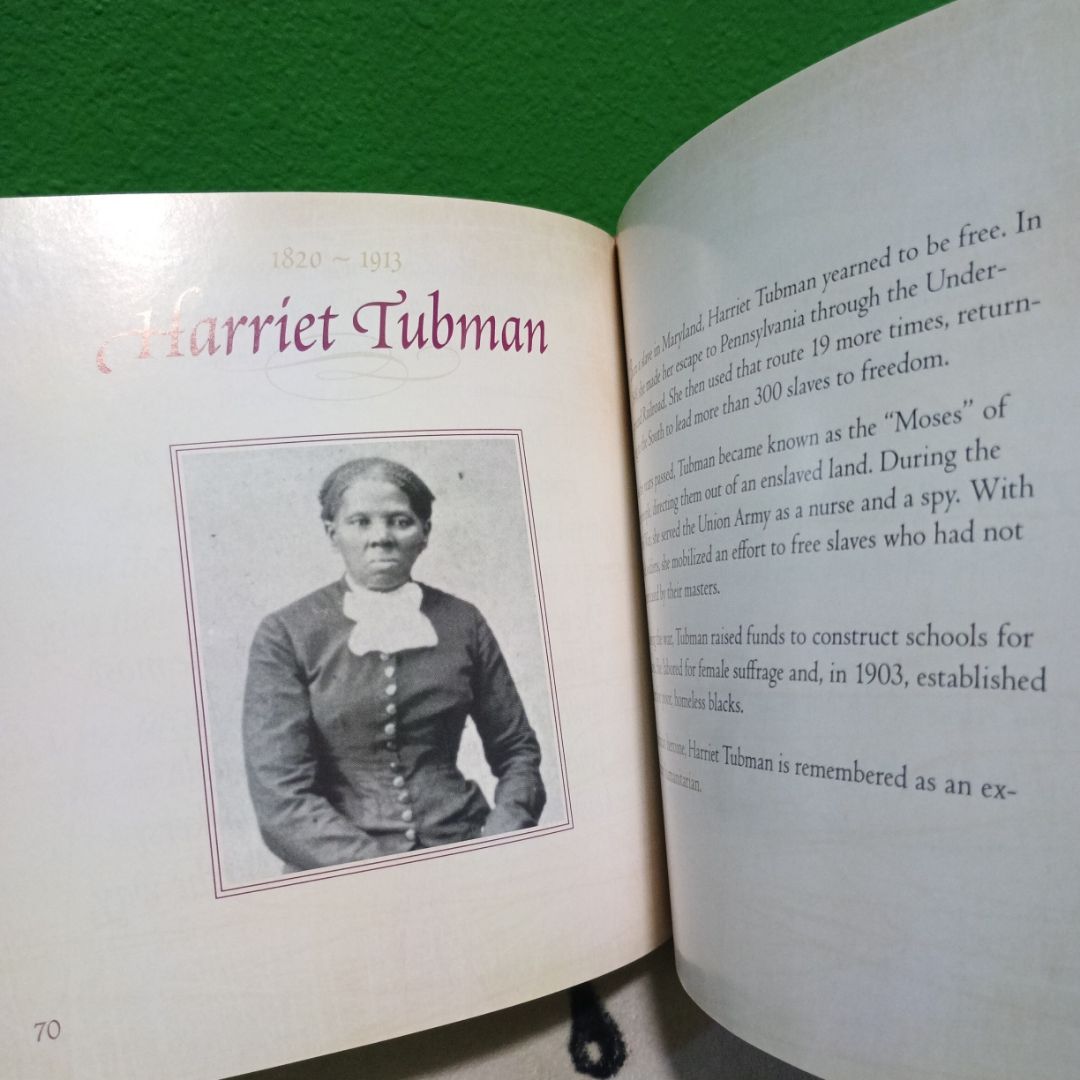 1820 ~ 1913
Harriet Tubman
70
a slave in Maryland, Harriet Tubman yearned to be free. In
she made her escape to Pennsylvania through the Under-
Railroad. She then used that route 19 more times, return-
the South to lead more than 300 slaves to freedom.
years passed, Tubman became known as the “Moses” of
directing them out of an enslaved land. During the
she served the Union Army as a nurse and a spy. With
she mobilized an effort to free slaves who had not
by their masters.
the war, Tubman raised funds to construct schools for
labored for female suffrage and, in 1903, established
poor, homeless blacks.
heroine, Harriet Tubman is remembered as an ex-